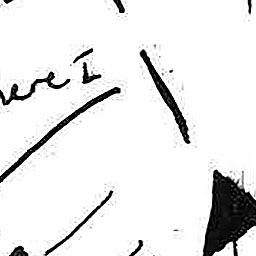 here I